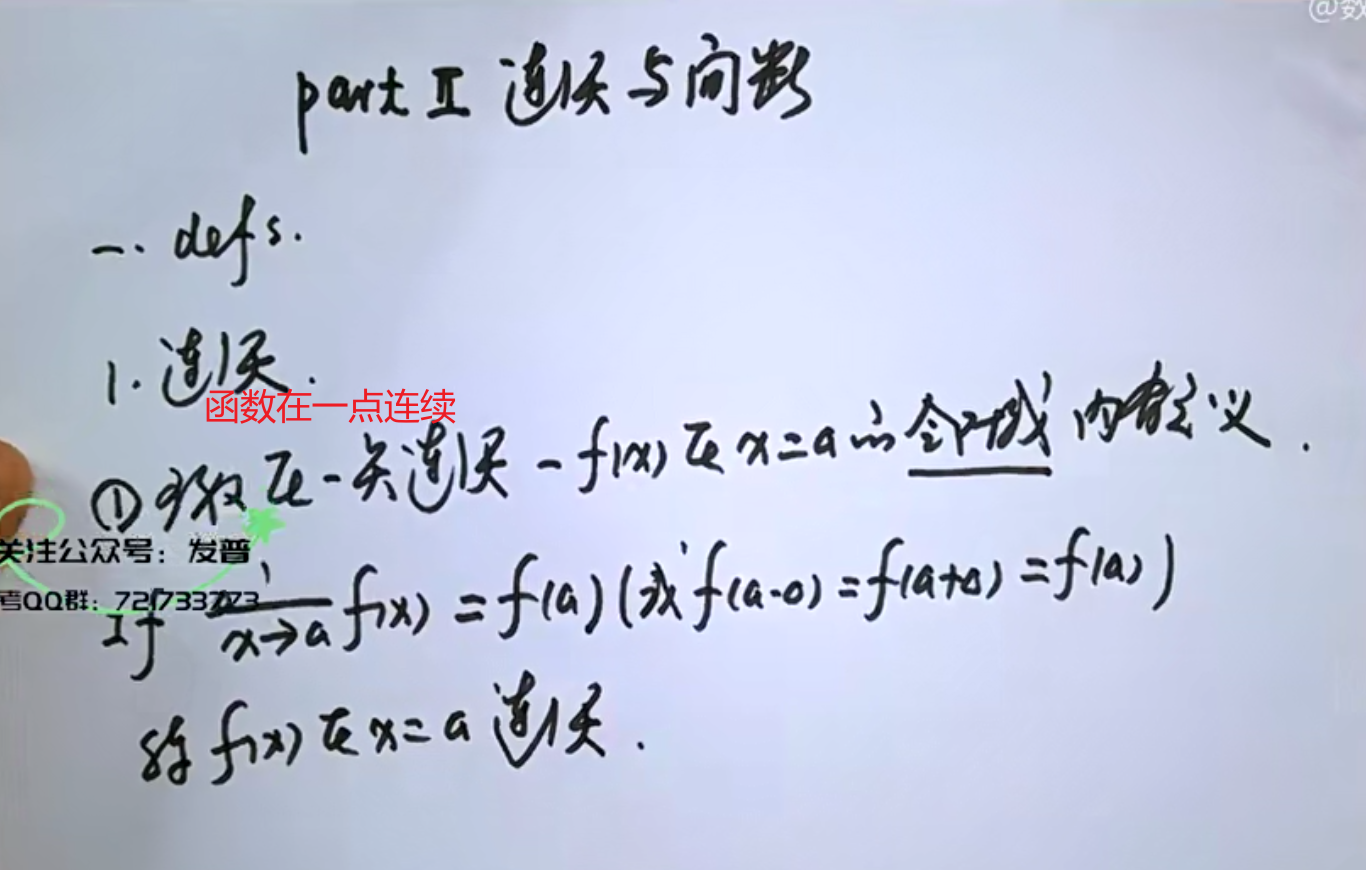 @数
part Ⅱ 连续与间断
一. defs.
1. 连续.
函数在一点连续
① 函数在一点连续 - f(x) 在 x=a 的 邻域 内有定义.
关注公众号：发普
考QQ群：721733773
If lim x→a f(x) = f(a) (或 f(a-0) = f(a+0) = f(a))
称 f(x) 在 x=a 连续.